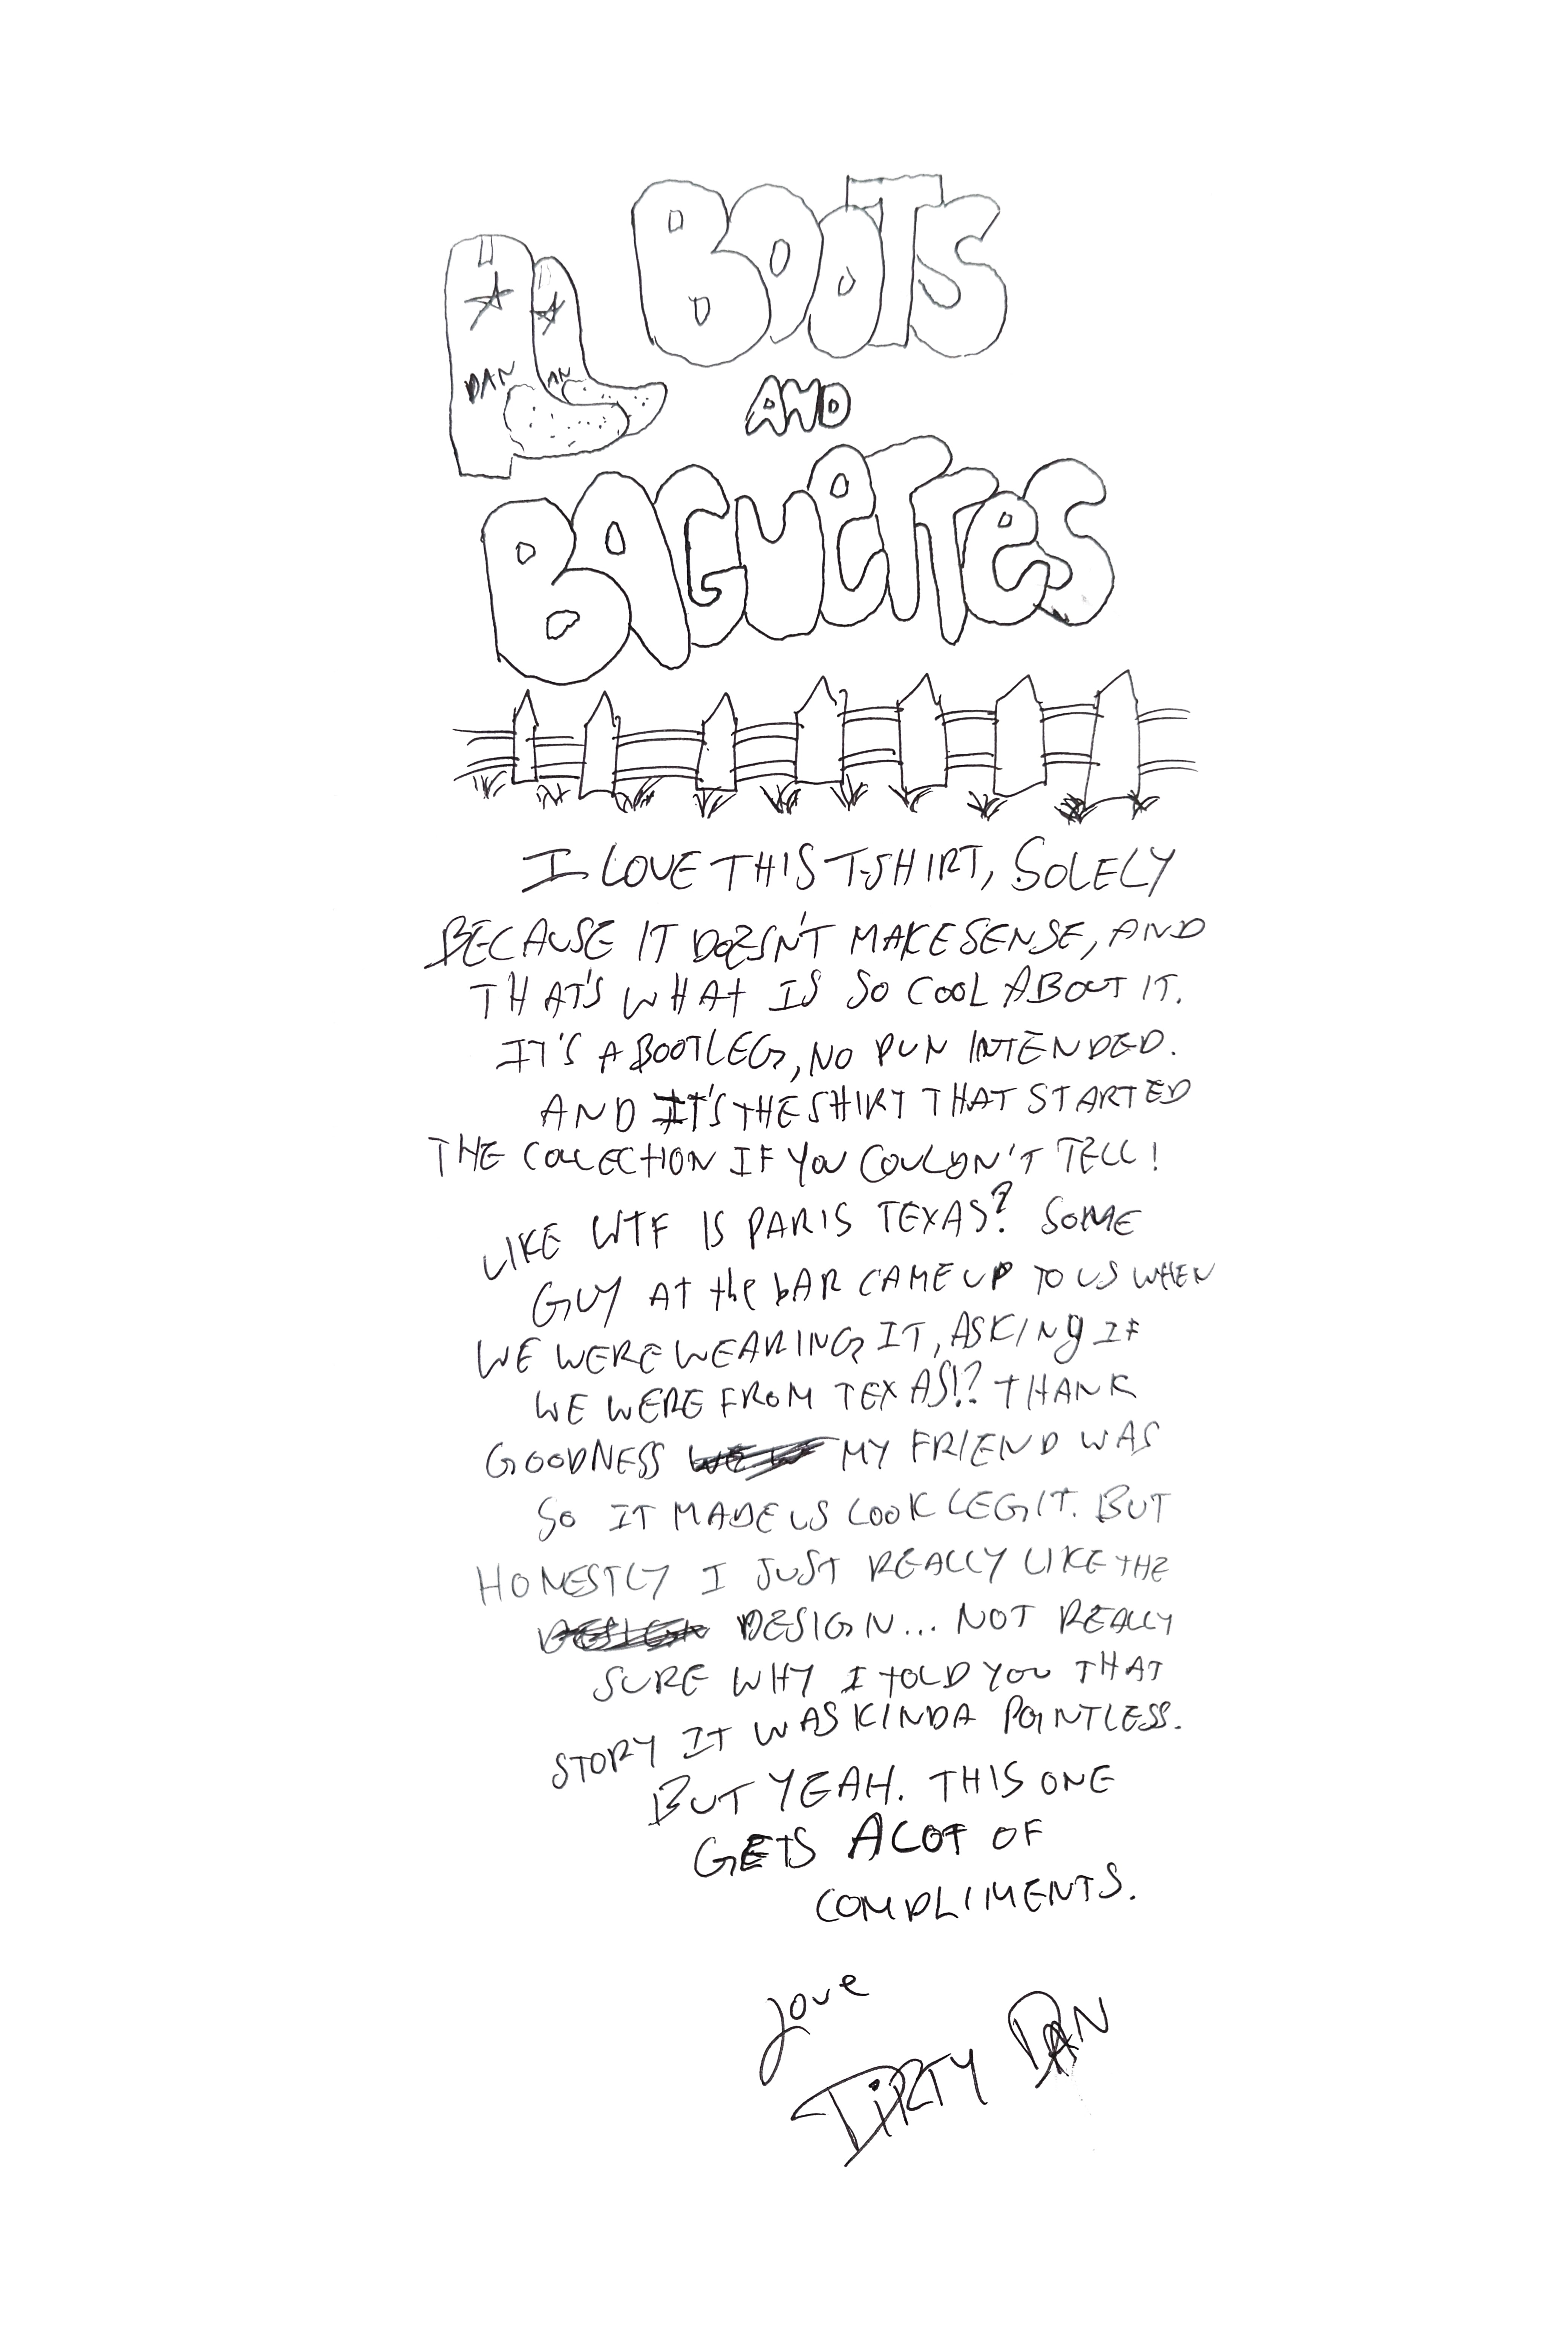 BOOTS
DAN AN
AND
BAGUETTES
I LOVE THIS T-SHIRT, SOLELY
BECAUSE IT DOESN'T MAKE SENSE, AND
THAT'S WHAT IS SO COOL ABOUT IT.
IT'S A BOOTLEG, NO PUN INTENDED.
AND IT'S THE SHIRT THAT STARTED
THE COLLECTION IF YOU COULDN'T TELL!
LIKE WTF IS PARIS TEXAS? SOME
GUY AT the bAR CAME UP TO US WHEN
WE WERE WEARING IT, ASKINg IF
WE WERE FROM TEXAS!? THANK
GOODNESS MY FRIEND WAS
SO IT MADE US LOOK LEGIT. BUT
HONESTLY I JUST REALLY LIKE THE
DESIGN... NOT REALLY
SURE WHY I TOLD YOU THAT
STORY IT WAS KINDA POINTLESS.
BUT YEAH. THIS ONE
GETS A LOT OF
COMPLIMENTS.
Love
DiRTY DAN